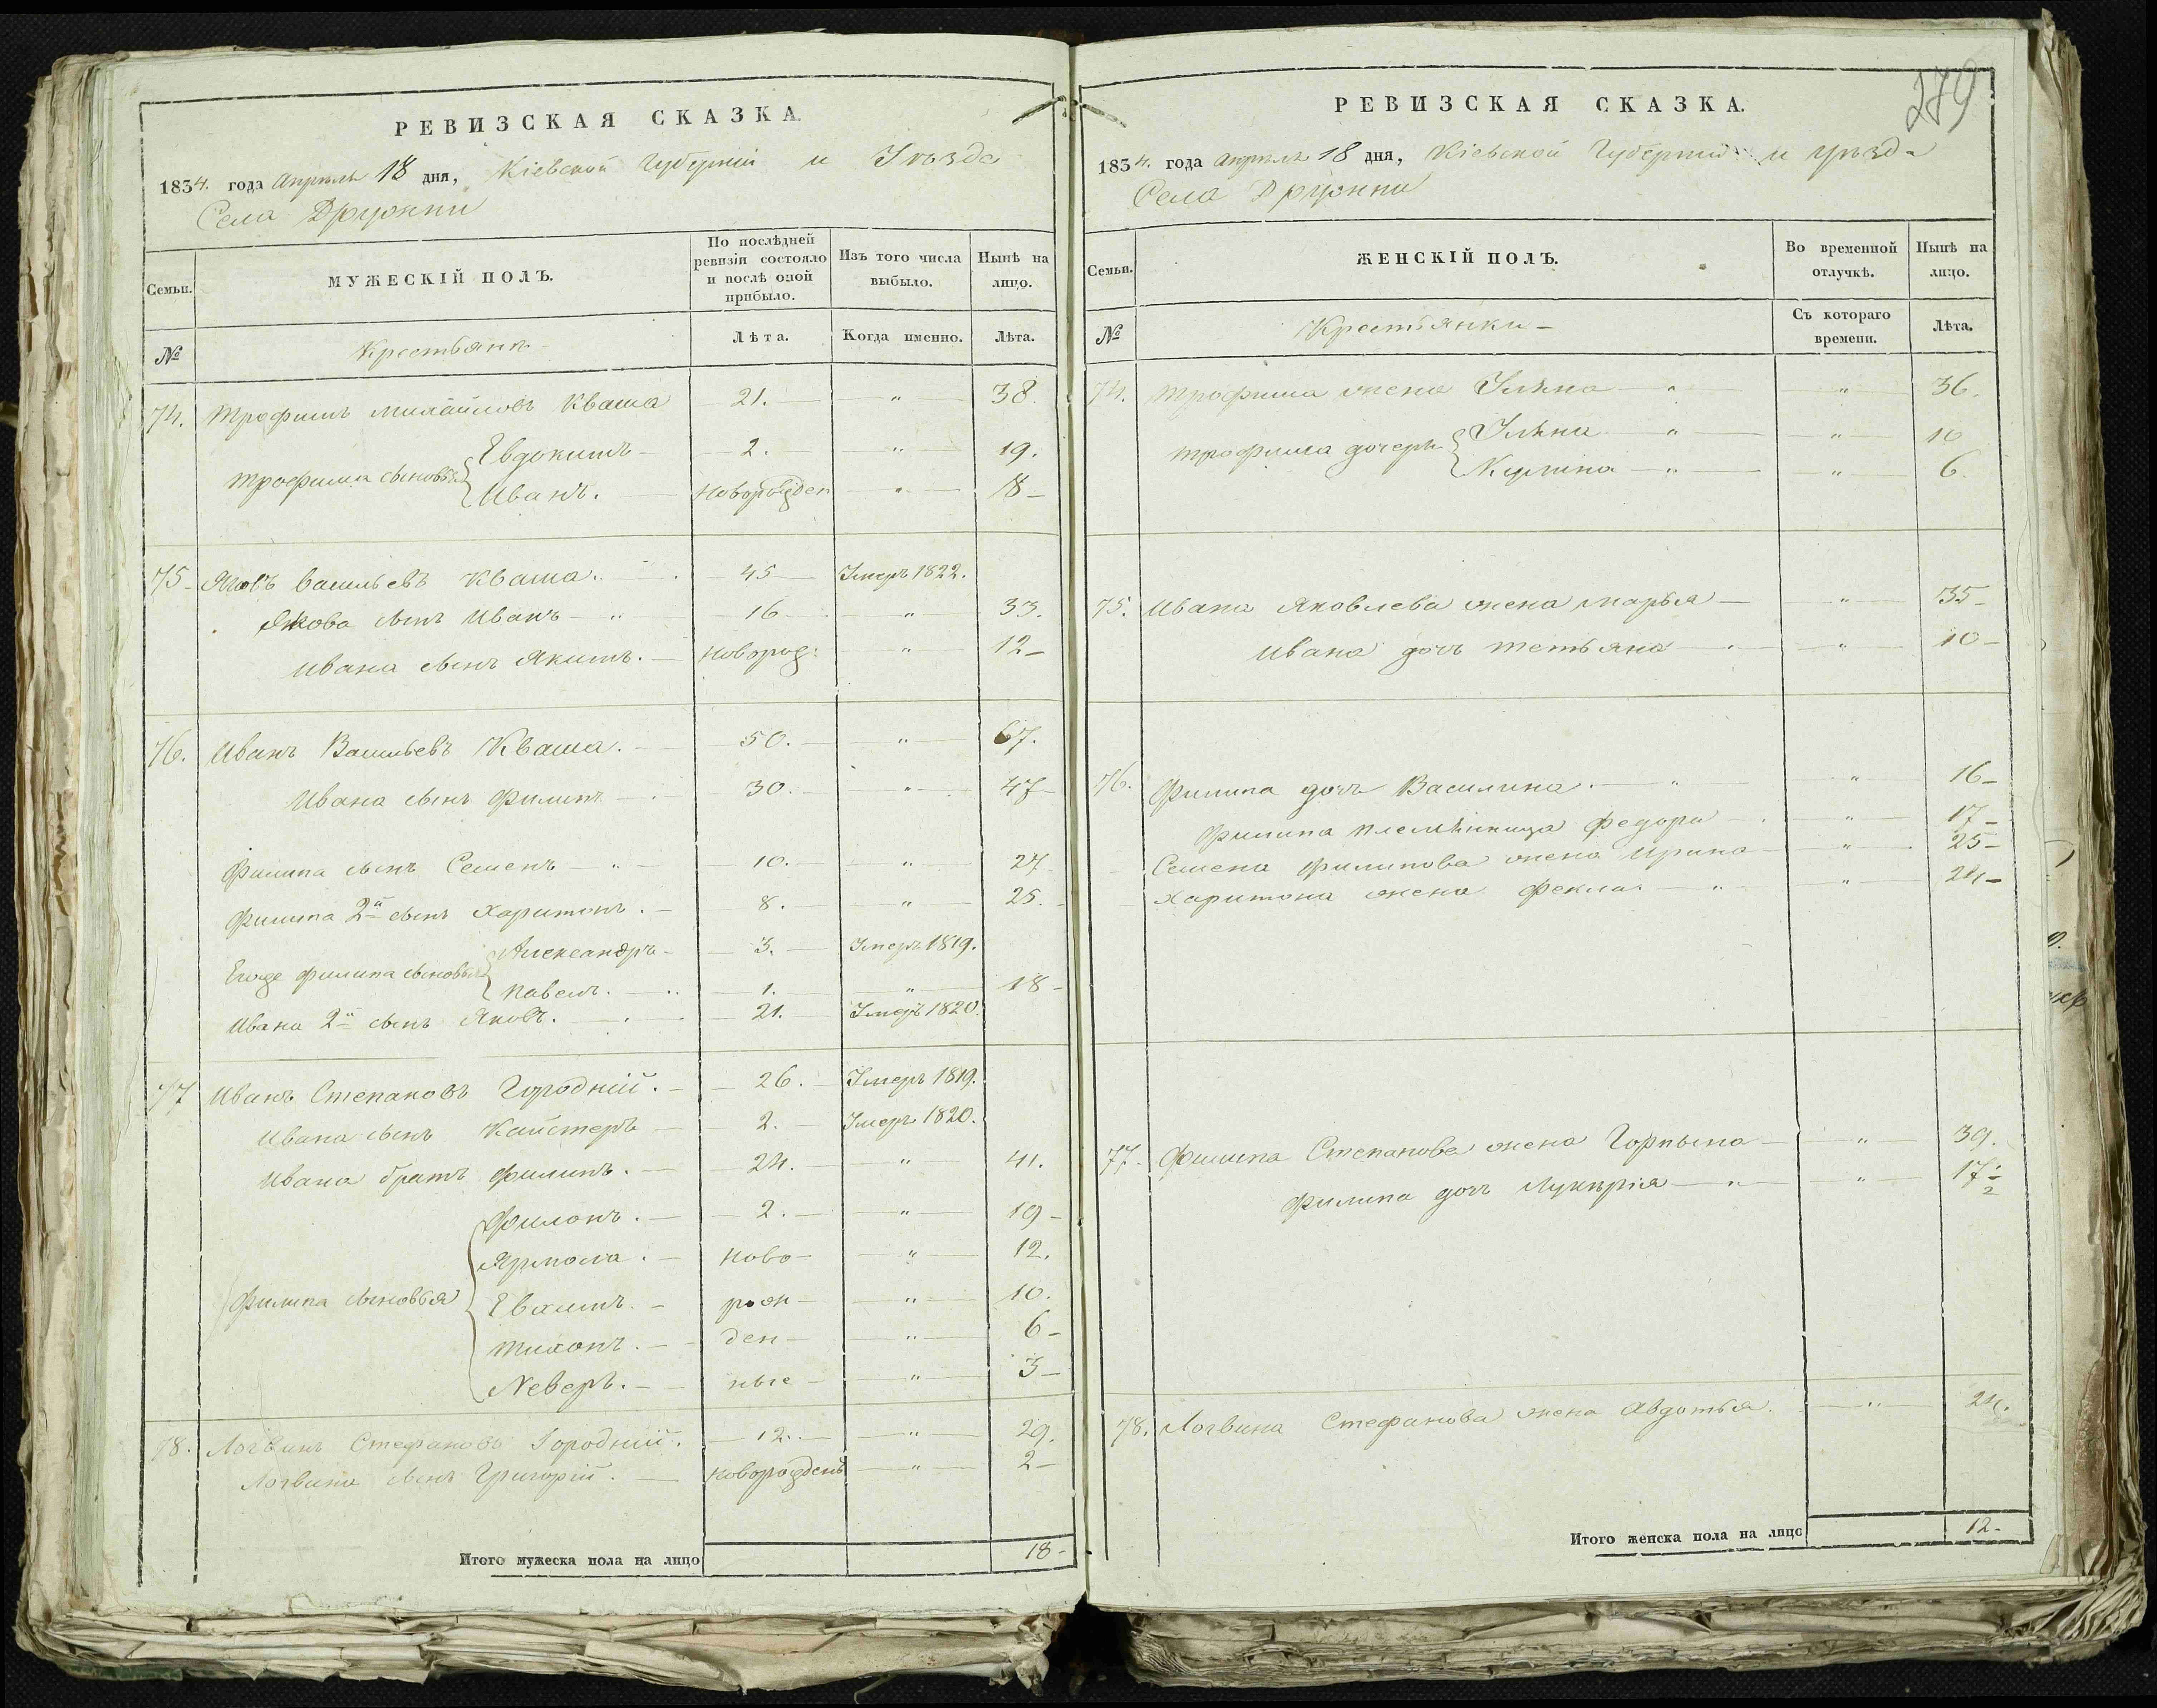 РЕВИЗСКАЯ СКАЗКА.
1834. года Апрѣля 18 дня, Кіевской Губерніи и Уѣзда
Села Дружни
Семьи. МУЖЕСКІЙ ПОЛЪ. По послѣдней ревизіи состояло и послѣ оной прибыло. Изъ того числа выбыло. Нынѣ на лицо.
№ Крестьянъ Лѣта. Когда именно. Лѣта.
74. Трофимъ Михайловъ Кваша 21. " 38.
Трофима сыновья Евдокимъ 2. " 19.
Иванъ. новорожден " 8
75 Яковъ Васильевъ Кваша. 45 Умеръ 1822.
Якова сынъ Иванъ " 16 " 33.
Ивана сынъ Якимъ. новорож: " 12
76. Иванъ Васильевъ Кваша. 50. " 67.
Ивана сынъ Филипъ 30. " 47
Филипа сынъ Семенъ " 10. " 27
Филипа 2й сынъ Харитонъ. 8. " 25.
Егоже Филипа сыновья Александръ 3. Умеръ 1819.
Павелъ. 1. " 18
Ивана 2й сынъ Яковъ. 21. Умеръ 1820.
77 Иванъ Степановъ Городній. 26. Умеръ 1819.
Ивана сынъ 2. Умеръ 1820.
Ивана братъ Филипъ. 24. " 41.
Филипа сыновья Филонъ. 2. " 19
Ярмола. ново " 12.
Евхимъ. рож " 10.
Тихонъ. ден " 6
ные " 3
78. Логвинъ Стефановъ Городній. 12. " 29.
Логвина сынъ Григорій. новорожденъ " 2
Итого мужеска пола на лицо 18
279
РЕВИЗСКАЯ СКАЗКА.
1834. года Апрѣля 18 дня, Кіевской Губерніи и уѣзда
Села Дружни
Семьи. ЖЕНСКІЙ ПОЛЪ. Во временной отлучкѣ. Нынѣ на лицо.
№ Крестьянки Съ котораго времени. Лѣта.
74. Трофима жена Уляна " " 36.
Трофима дочери Уляна " " 10
" " 6.
75. Ивана Яковлева жена Марья " 35
Ивана дочь Тетьяна " 10
76. Филипа дочь Василина. " " 16
Филипа племѣнница Федора " 17
Семена Филипова жена Ирина " 25
Харитона жена Фекла " " 24
77. Филипа Степанова жена Горпына " 39.
Филипа дочь Лукѣрія " " 17
78. Логвина Стефанова жена Авдотья. " 24.
Итого женска пола на лицо 12